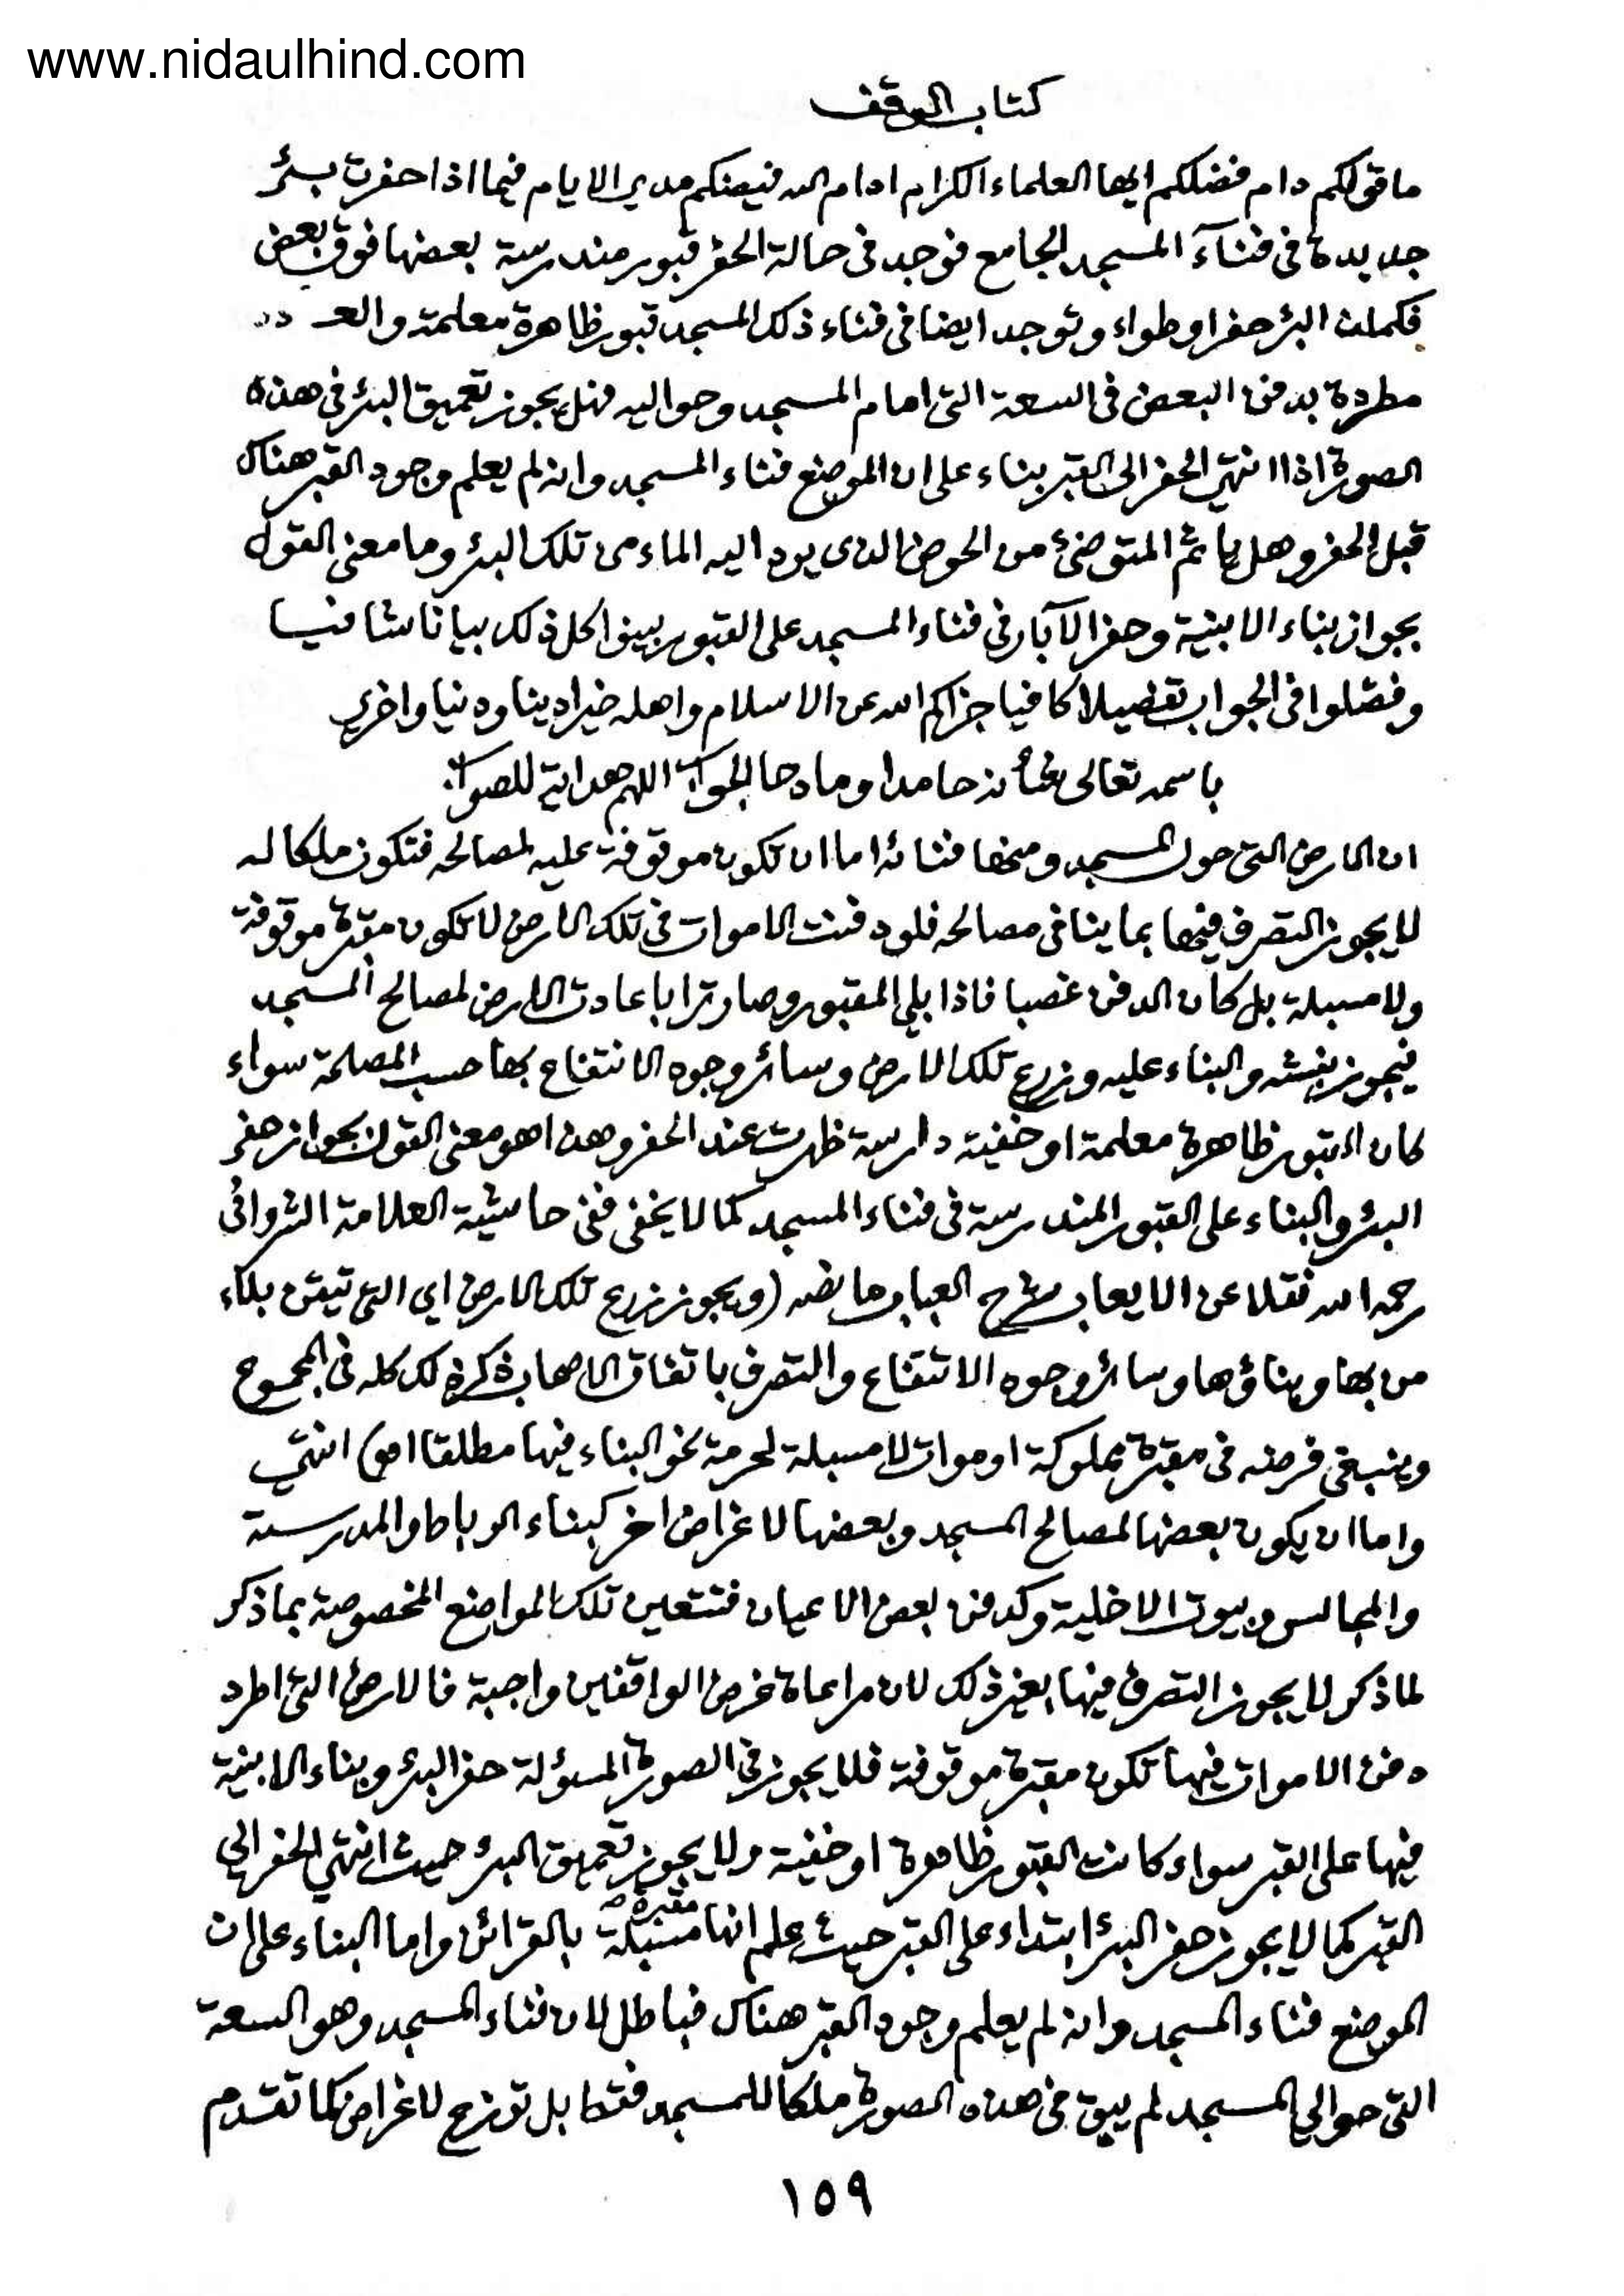 www.nidaulhind.com
كتاب الوقف
ما قولكم دام فضلكم ايها العلماء الكرام ادام الله فيضكم مدى الايام فيما اذا حفرت بئر
جديدة فى فناء المسجد الجامع فوجد فى حالة الحفر قبور مندرسة بعضها فوق بعض
فكملت البئر حفرا وطواء وتوجد ايضا فى فناء ذلك المسجد قبور ظاهرة معلمة والعـ دة
مطردة بدفن البعض فى السعة التى امام المسجد وحواليه فهل يجوز تعميق البئر فى هذه
الصورة اذا انتهى الحفر الى القبر بناء على ان الموضع فناء المسجد وانه لم يعلم وجود القبر هناك
قبل الحفر وهل يأثم المتوضئ من الحوض الذى يرد اليه الماء من تلك البئر وما معنى القول
بجواز بناء الابنية وحفر الآبار فى فناء المسجد على القبور بينوا كل ذلك بيانا شافيا
وفصّلوا فى الجواب تفصيلا كافيا جزاكم الله عن الاسلام واهله خيرا دينا ودنيا واخرى
باسمه تعالى شأنه حامدا ومادحا الجواب اللهم هداية للصواب
ان الارض التى حول المسجد ومنها فنائه اما ان تكون موقوفة عليه لمصالحه فتكون ملكا له
لا يجوز التصرف فيها بما ينافى مصالحه فلو دفنت الاموات فى تلك الارض لا تكون مقبرة موقوفة
ولا مسبلة بل كان الدفن غصبا فاذا بلي المقبور وصار ترابا عادت الارض لمصالح المسجد
فيجوز نبشه والبناء عليه وزرع تلك الارض وسائر وجوه الانتفاع بها حسب المصلحة سواء
كان القبور ظاهرة معلمة او خفية دارسة ظهرت عند الحفر وهذا هو معنى القول بجواز حفر
البئر والبناء على القبور المندرسة فى فناء المسجد كما لا يخفى ففى حاشية العلامة الشروانى
رحمه الله نقلا عن الايعاب شرح العباب ما نصه (ويجوز زرع تلك الارض اي التى تيقن بلاء
من بها وبناؤها وسائر وجوه الانتفاع والتصرف باتفاق الاصحاب ذكر ذلك كله فى المجموع
وينبغى فرضه فى مقبرة مملوكة او موات لا مسبلة لحرمة نحو البناء فيها مطلقا اه) انتهى
واما ان يكون بعضها لمصالح المسجد وبعضها لاغراض اخر كبناء الرباط والمدرسة
والمجالس وبيوت الاخلية وكدفن بعض الاعيان فتتعين تلك المواضع المخصوصة بما ذكر
لما ذكر لا يجوز التصرف فيها بغير ذلك لان مراعاة غرض الواقفين واجبة فالارض التى اطرد
دفن الاموات فيها تكون مقبرة موقوفة فلا يجوز فى الصورة المسؤلة حفر البئر وبناء الابنية
فيها على القبر سواء كانت القبور ظاهرة او خفية ولا يجوز تعميق البئر حيث انتهى الحفر الى
القبر كما لا يجوز حفر البئر ابتداء على القبر حيث علم انها مقبرة مسبلة بالقرائن واما البناء على ان
الموضع فناء المسجد وانه لم يعلم وجود القبر هناك فباطل لان فناء المسجد وهو السعة
التى حوالي المسجد لم يبق فى هذه الصورة ملكا للمسجد فقط بل توزع لاغراض كما تقدم
١٥٩